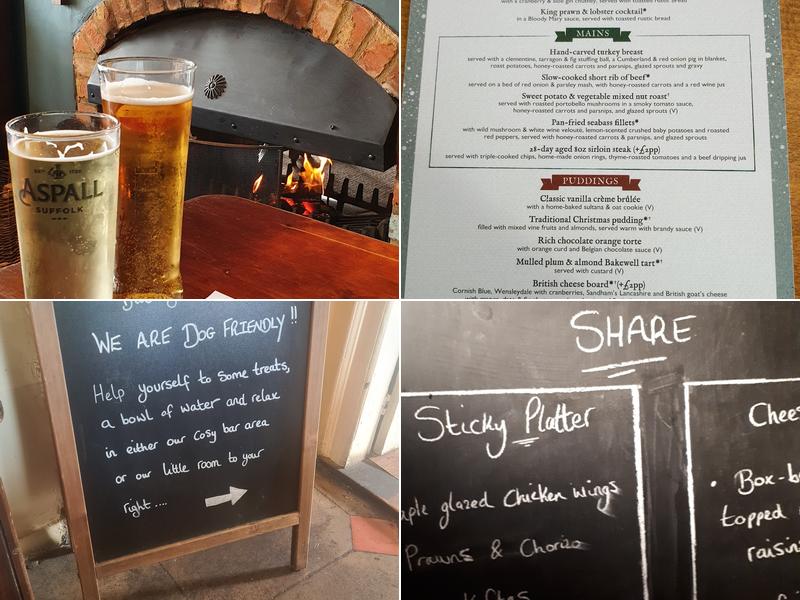 EST 1728
ASPALL
SUFFOLK
King prawn & lobster cocktail*
in a Bloody Mary sauce, served with toasted rustic bread
MAINS
Hand-carved turkey breast
served with a clementine, tarragon & fig stuffing ball, a Cumberland & red onion pig in blanket,
roast potatoes, honey-roasted carrots and parsnips, glazed sprouts and gravy
Slow-cooked short rib of beef*
served on a bed of red onion & parsley mash, with honey-roasted carrots and a red wine jus
Sweet potato & vegetable mixed nut roast†
served with roasted portobello mushrooms in a smoky tomato sauce,
honey-roasted carrots and parsnips, glazed sprouts (V)
Pan-fried seabass fillets*
with wild mushroom & white wine velouté, lemon-scented crushed baby potatoes and roasted
red peppers, served with honey-roasted carrots & parsnips, and glazed sprouts
28-day aged 8oz sirloin steak (+£app)
served with triple-cooked chips, home-made onion rings, thyme-roasted tomatoes and a beef dripping jus
PUDDINGS
Classic vanilla crème brûlée
with a home-baked sultana & oat cookie (V)
Traditional Christmas pudding*†
filled with mixed vine fruits and almonds, served warm with brandy sauce (V)
Rich chocolate orange torte
with orange curd and Belgian chocolate sauce (V)
Mulled plum & almond Bakewell tart*†
served with custard (V)
British cheese board*†(+£app)
Cornish Blue, Wensleydale with cranberries, Sandham's Lancashire and British goat's cheese
WE ARE DOG FRIENDLY!!
Help yourself to some treats,
a bowl of water and relax
in either our cosy bar area
or our little room to your
right....
SHARE
Sticky Platter
glazed Chicken wings
Prawns & Chorizo
Chees
• Box-b
topped
raisin